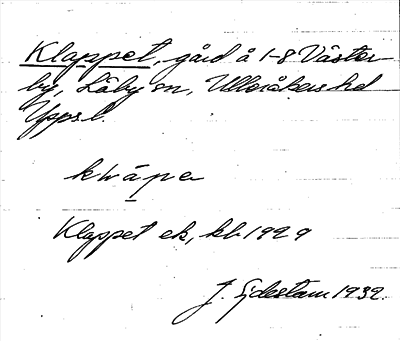 Klappet, gård å 1-8 Väster
by, Läby sn, Ulleråkers hd
Upps. l.
Klappet ek, kb 1929
J. Sjdestam 1932.